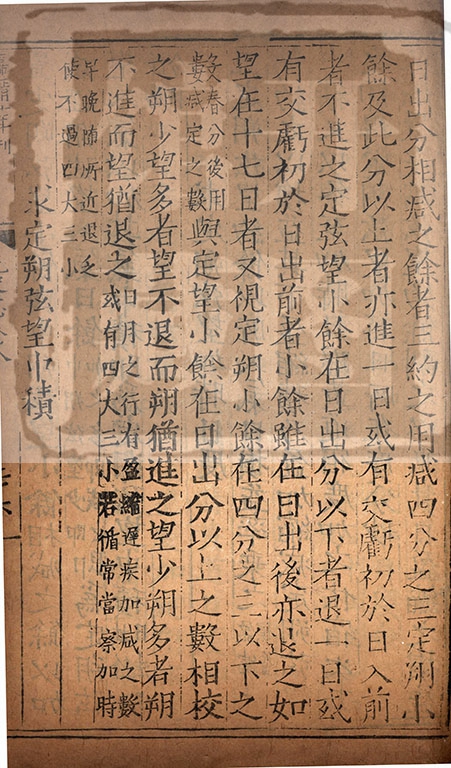 日出分相減之餘者三約之用減四分之三定朔小
餘及此分以上者亦進一日或有交虧初於日入前
者不進之定弦望小餘在日出分以下者退一日或
有交虧初於日出前者小餘雖在日出後亦退之如
望在十七日者又視定朔小餘在四分之三以下之
數春分後用減定之數與定望小餘在日出分以上之數相校
之朔少望多者望不退而朔猶進之望少朔多者朔
不進而望猶退之日月之行有盈縮遲疾加減之數或有四大三小若循常當察加時
早晚隨所近退之使不過四大三小
求定朔弦望中積